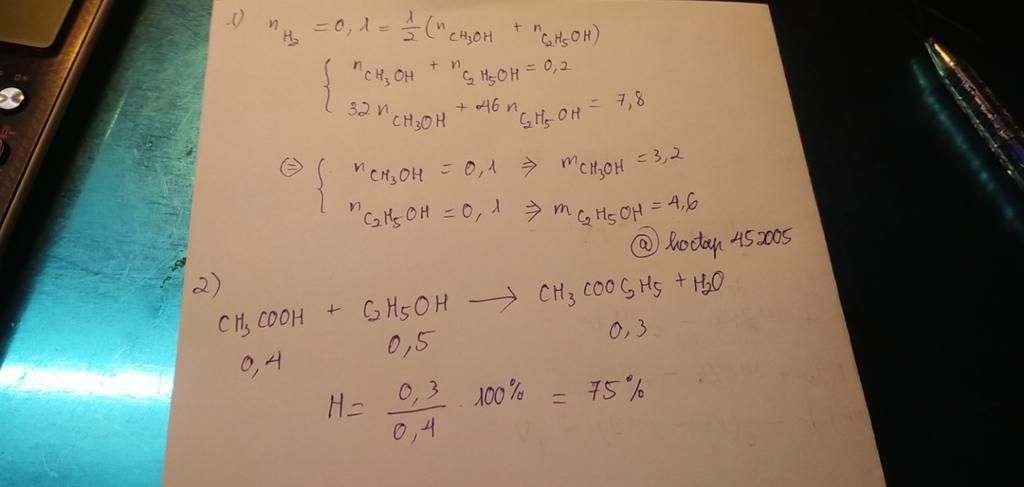 1) nH2 = 0,1 = 1/2 (nCH3OH + nC2H5OH)
{ nCH3OH + nC2H5OH = 0,2
32 nCH3OH + 46 nC2H5OH = 7,8
⇔ { nCH3OH = 0,1 ⇒ mCH3OH = 3,2
nC2H5OH = 0,1 ⇒ mC2H5OH = 4,6
@ hoctap 452005
2)
CH3COOH + C2H5OH ⟶ CH3COOC2H5 + H2O
0,4 0,5 0,3
H = 0,3/0,4 . 100% = 75%